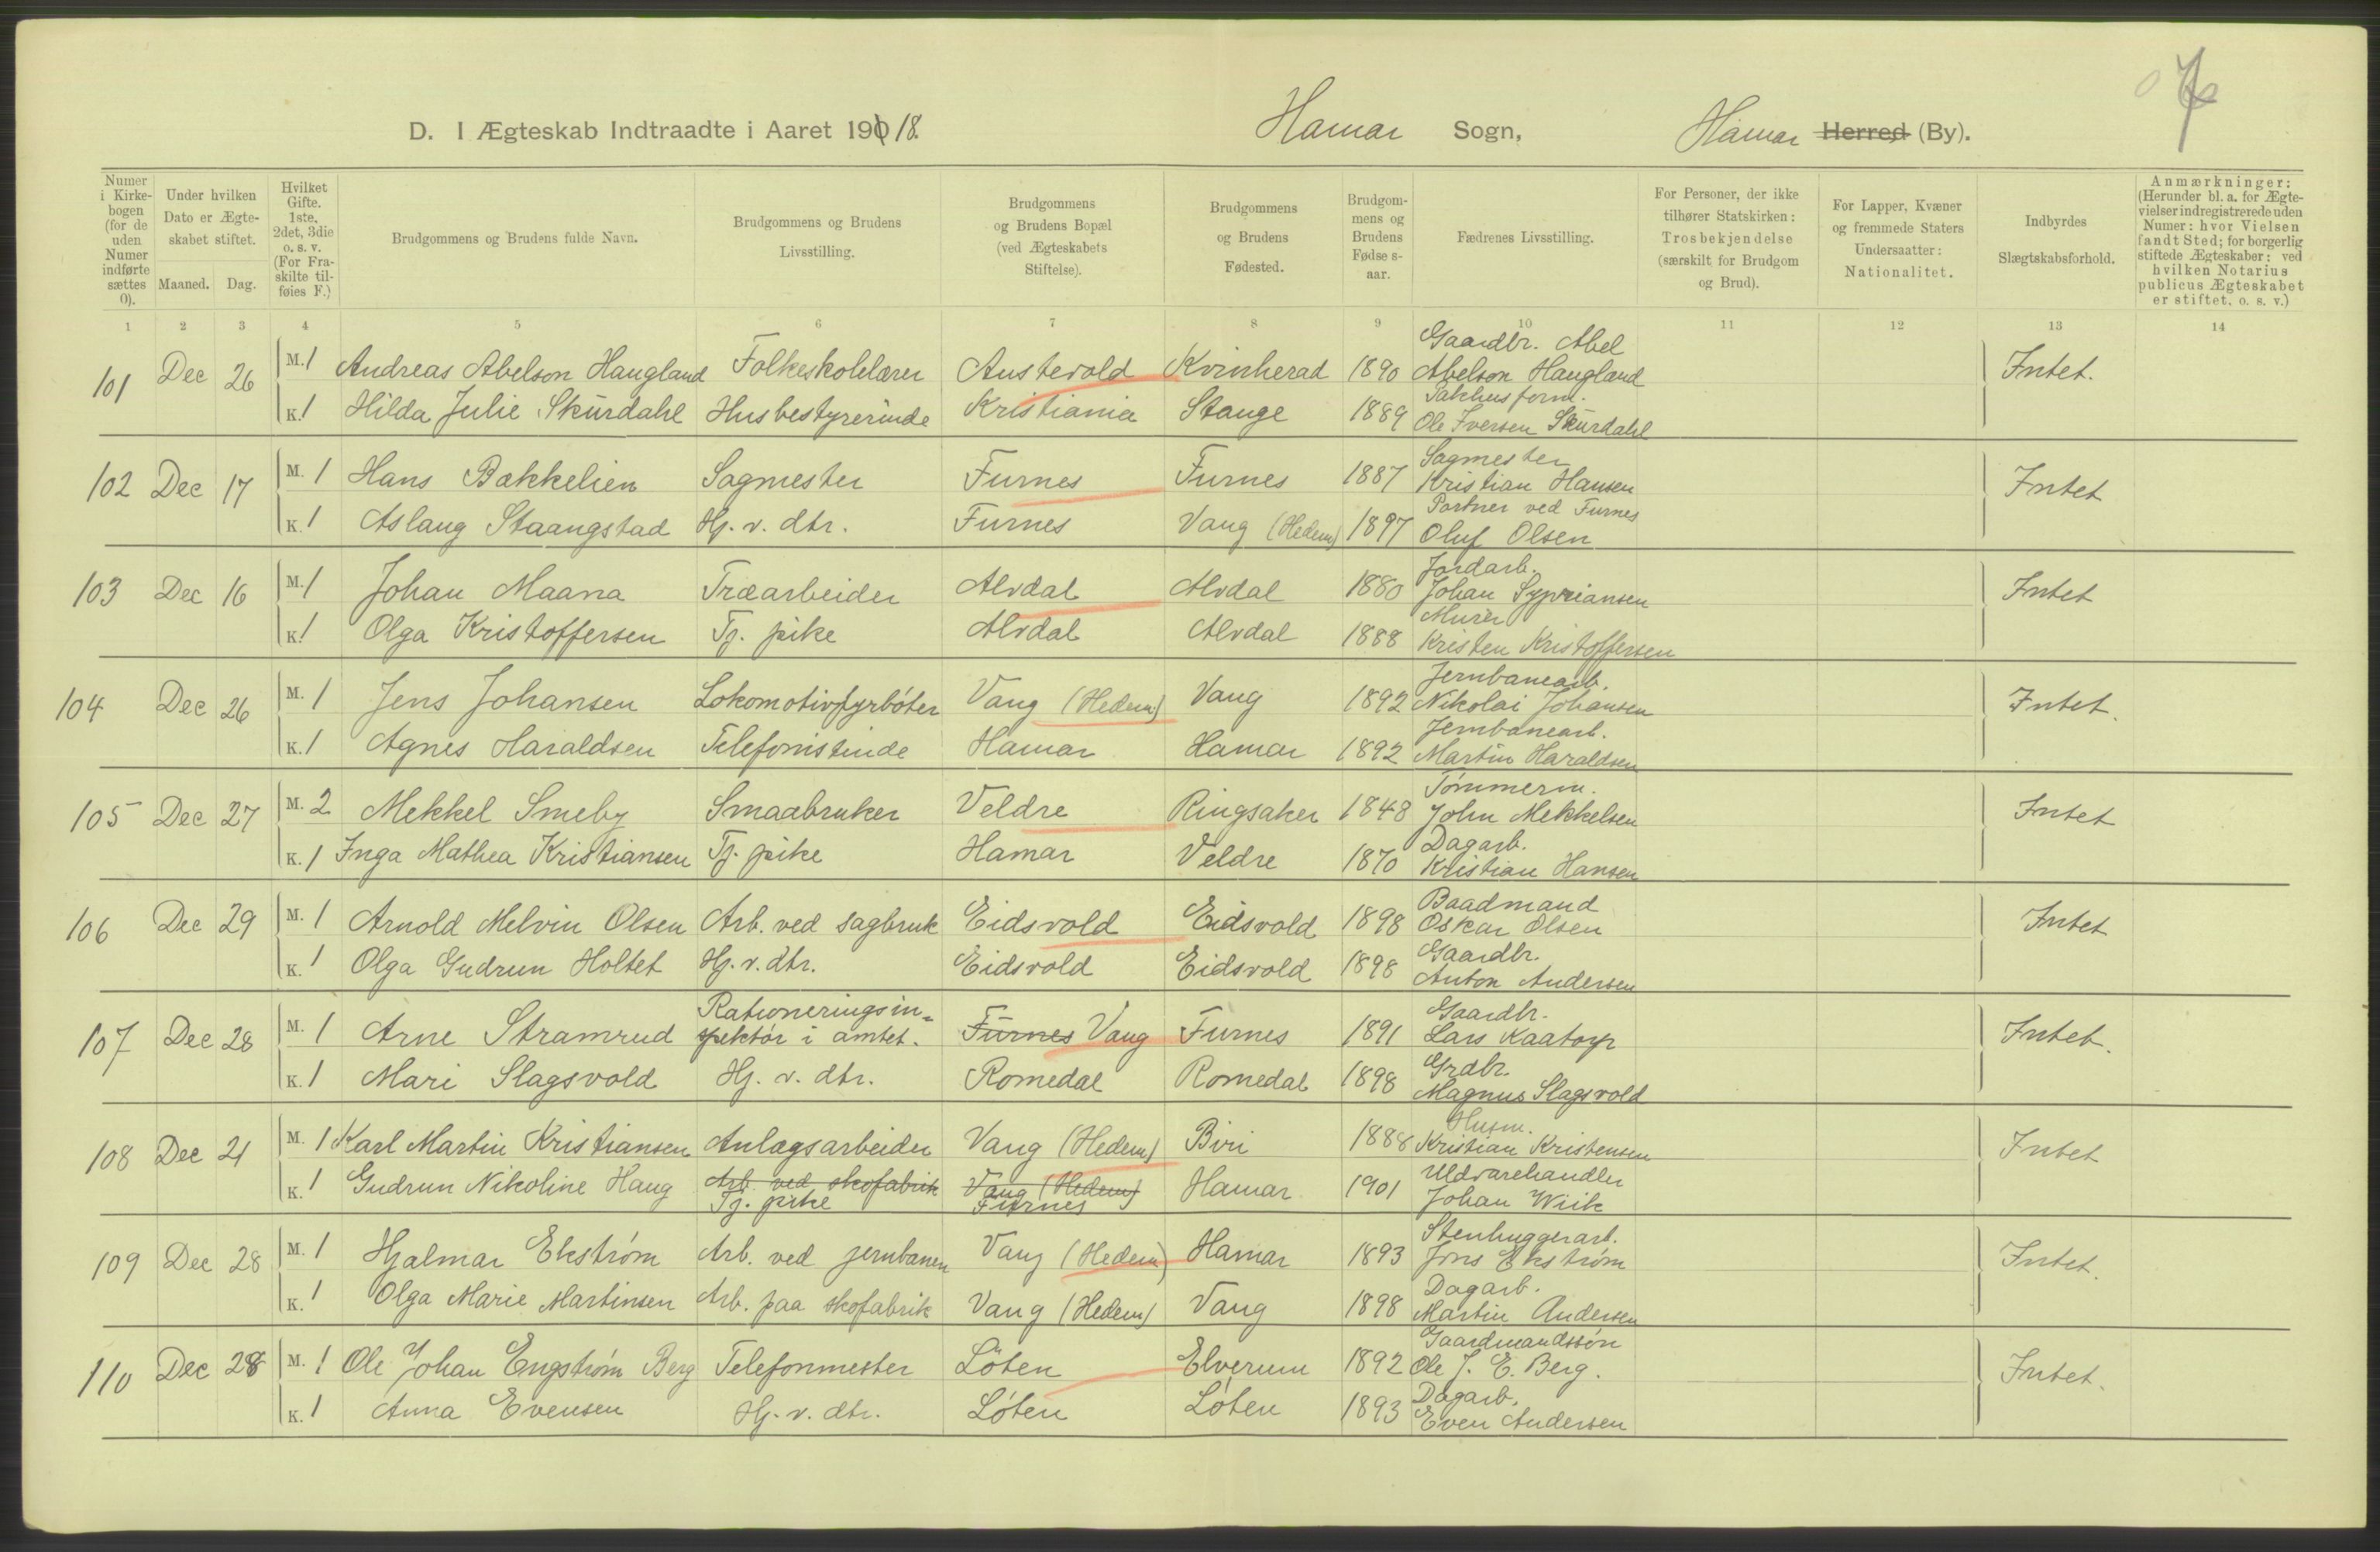 D. I Ægteskab Indtraadte i Aaret 1918. Hamar Sogn, Hamar Herred (By).
Numer i Kirke-bogen (for de uden Numer indførte sættes 0).
Under hvilken Dato er Ægte-skabet stiftet.
Maaned. Dag.
Hvilket Gifte. 1ste, 2det, 3die o. s. v. (For Fra-skilte til-føies F.)
Brudgommens og Brudens fulde Navn.
Brudgommens og Brudens Livsstilling.
Brudgommens og Brudens Bopæl (ved Ægteskabets Stiftelse).
Brudgommens og Brudens Fødested.
Brudgom-mens og Brudens Fødsels-aar.
Fædrenes Livsstilling.
For Personer, der ikke tilhører Statskirken: Trosbekjendelse (særskilt for Brudgom og Brud).
For Lapper, Kvæner og fremmede Staters Undersaatter: Nationalitet.
Indbyrdes Slægtskabsforhold.
Anmærkninger: (Herunder bl. a. for Ægte-vielser indregistrerede uden Numer: hvor Vielsen fandt Sted; for borgerlig stiftede Ægteskaber: ved hvilken Notarius publicus Ægteskabet er stiftet, o. s. v.)
1 2 3 4 5 6 7 8 9 10 11 12 13 14
101 Dec 26 M. 1 Andreas Abelson Haugland Folkeskolelærer Austevold Kvinherad 1890 Gaardbr. Abel Abelson Haugland Intet.
K. 1 Hilda Julie Skurdahl Husbestyrerinde Kristiania Stange 1889 Pakhusform. Ole Iversen Skurdahl
102 Dec 17 M. 1 Hans Bækkelien Sagmester Furnes Furnes 1887 Sagmester Kristian Hansen Intet
K. 1 Aslaug Staangstad Hj. v. dtr. Furnes Vang (Hedem) 1897 Portner ved Furnes Oluf Olsen
103 Dec 16 M. 1 Johan Maana Træarbeider Alvdal Alvdal 1880 Jordarb. Johan Sypriansen Intet
K. 1 Olga Kristoffersen Tj. pike Alvdal Alvdal 1888 Murer Kristen Kristoffersen
104 Dec 26 M. 1 Jens Johansen Lokomotivfyrbøter Vang (Hedem) Vang 1892 Jernbanearb. Nikolai Johansen Intet.
K. 1 Agnes Haraldsen Telefonistinde Hamar Hamar 1892 Jernbanearb. Martin Haraldsen
105 Dec 27 M. 2 Mekkel Smeby Smaabruker Veldre Ringsaker 1848 Tømmerm. John Mekkelsen Intet
K. 1 Inga Mathea Kristiansen Tj. pike Hamar Veldre 1870 Dagarb. Kristian Hansen
106 Dec 29 M. 1 Arnold Melvin Olsen Arb. ved sagbruk Eidsvold Eidsvold 1898 Baadmand Oskar Olsen Intet
K. 1 Olga Gudrun Holtet Hj. v. dtr. Eidsvold Eidsvold 1898 Gaardbr. Anton Andersen
107 Dec 28 M. 1 Arne Stramrud Rationeringsin=spektør i amtet. Furnes Vang Furnes 1891 Gaardbr. Lars Kaatorp Intet.
K. 1 Mari Slagsvold Hj. v. dtr. Romedal Romedal 1898 Grdbr. Magnus Slagsvold
108 Dec 21 M. 1 Karl Martin Kristiansen Anlægsarbeider Vang (Hedem) Biri 1888 Husm. Kristian Kristensen Intet
K. 1 Gudrun Nikoline Haug Arb. ved skofabrik Tj. pike Vang (Hedem) Furnes Hamar 1901 Uldvarehandler Johan Wiik
109 Dec 28 M. 1 Hjalmar Ekstrøm Arb. ved jernbanen Vang (Hedem) Hamar 1893 Stenhuggerarb. Jons Ekstrøm Intet.
K. 1 Olga Marie Martinsen Arb. paa skofabrik Vang (Hedem) Vang 1898 Dagarb. Martin Andersen
110 Dec 28 M. 1 Ole Johan Engstrøm Berg Telefonmester Löten Elverum 1892 Gaardmandssøn Ole J. E. Berg. Intet.
K. 1 Anna Evensen Hj. v. dtr. Løten Løten 1893 Dagarb. Even Andersen